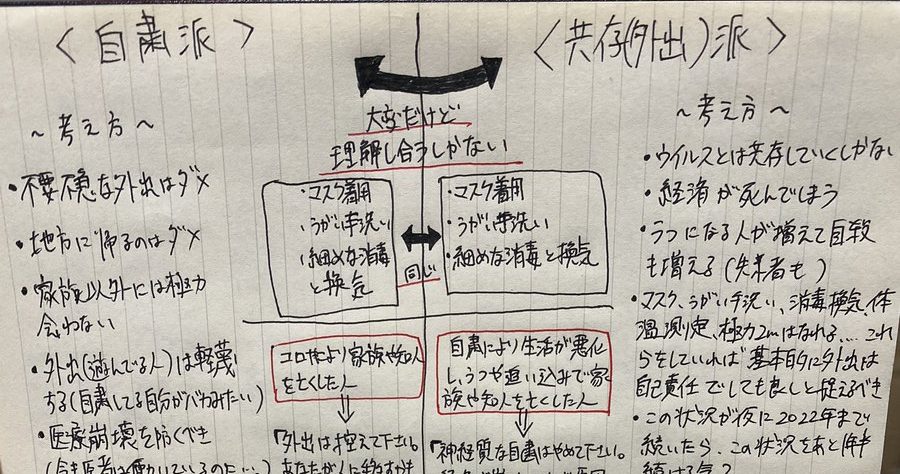 ＜自粛派＞
～考え方～
・不要不急な外出はダメ
・地方に帰るのはダメ
・家族以外には極力
会わない
・外出(遊んでる人)は軽蔑
する(自粛してる自分がバカみたい)
・医療崩壊を防ぐべき
大変だけど
理解し合うしかない
・マスク着用
・うがい手洗い
・細めな消毒
と換気
同じ
・マスク着用
・うがい手洗い
・細めな消毒と換気
コロナにより家族や知人
を亡くした人
「外出は控えて下さい。
自粛により生活が悪化
し、うつや追い込みで家
族や知人を亡くした人
「神経質な自粛はやめて下さい。
＜共存(外出)派＞
～考え方～
・ウイルスとは共存していくしかない
・経済が死んでしまう
・うつになる人が増えて自殺
も増える(失業者も)
・マスク、うがい手洗い、消毒換気、体
温測定、極力2mはなれる....これ
らをしていれば基本的に外出は
自己責任でしても良しと捉えるべき
・この状況が仮に2022年まで
続いたら、この状況をあと1年半
続ける気?